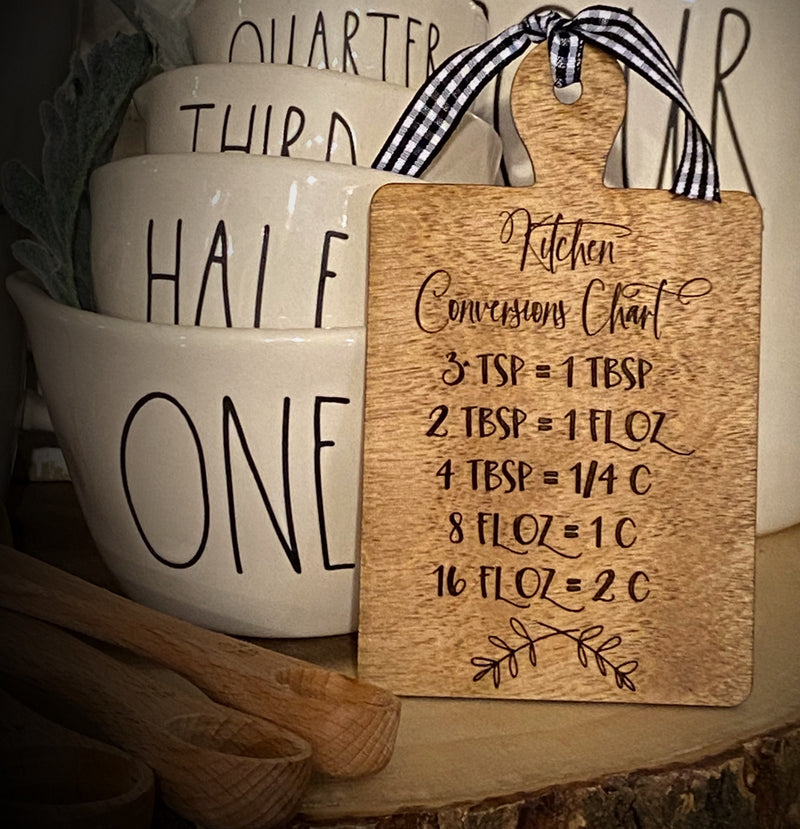 QUARTER
THIRD
HALF
ONE
Kitchen
Conversions Chart
3 TSP = 1 TBSP
2 TBSP = 1 FL OZ
4 TBSP = 1/4 C
8 FL OZ = 1 C
16 FL OZ = 2 C